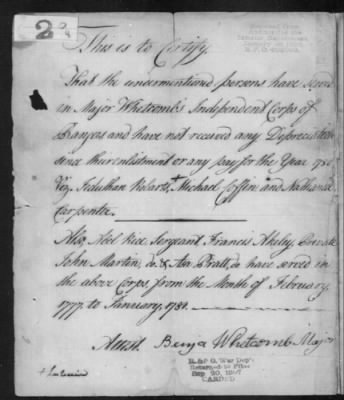 2
This is to Certify
That the undermentioned persons have served
in Major Whetcomb's Independent Corps of
Rangers and have not received any Depreciation
sence their enlistment or any pay for the Year 1780
Viz. Roberts + Michael Coffin and Nathaniel
Carpenter
Also Abel Rice Sergeant Francis Akeley, Private
John Martin, Do. & Asa Pratt, Do have served in
the above Corps, from the Month of February
1777. to January, 1781.
Attest. Benja Whetcomb Major
R. & P. O. War Dep't
Returned to Files
Sep 20, 1897
CARDED